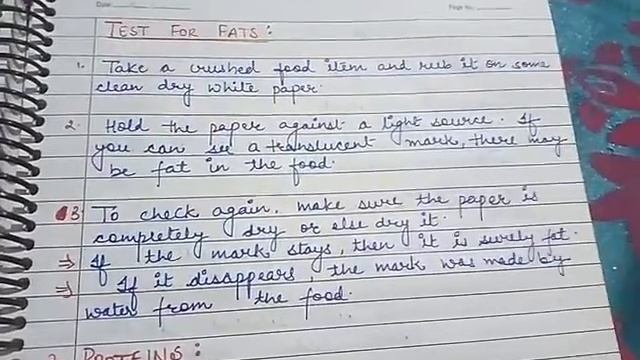 Date
Page No.
TEST FOR FATS:
1. Take a crushed food item and rub it on some
clean dry white paper.
2. Hold the paper against a light source. If
you can see a translucent mark, there may
be fat in the food.
3 To check again, make sure the paper is
completely dry or else dry it.
⇒ If the mark stays, then it is surely fat.
⇒ If it disappears, the mark was made by
water from the food.
2. PROTEINS: